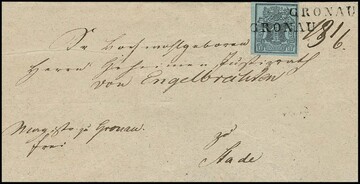 GRONAU
GRONAU
Sr Hochwohlgeboren
Herrn Geheimen Justizrath
von Engelbrechten
zu
Magistr. zu Gronau
frei
Stade